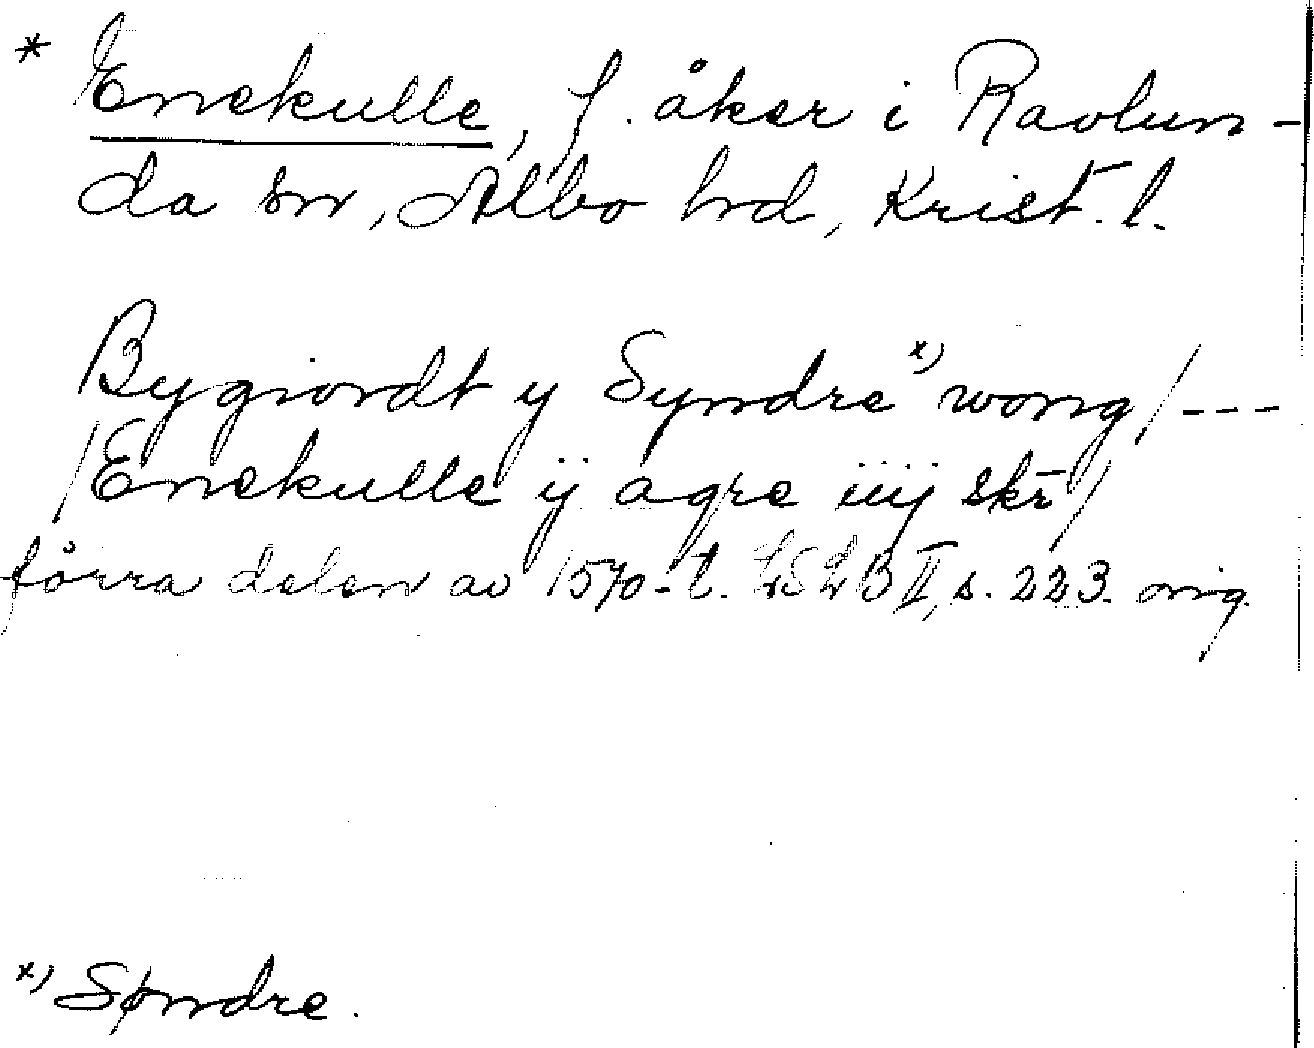 * Enekulle, f. åker i Ravlun-
da sn, Albo hd, Krist. l.
Bygiordt y Syndre x) wong/---
/Enekulle ÿ agre iiÿ skr/
förra delen av 1570-t. LSLB II, s. 223. orig.
x) Søndre.